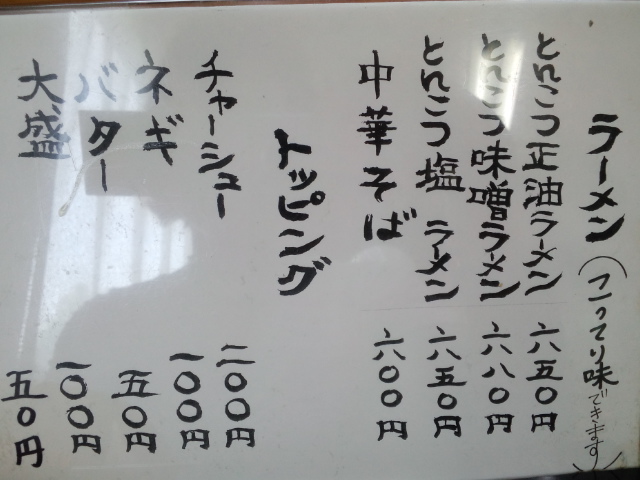 ラーメン(こってり味できます)
とんこつ正油ラーメン 六五〇円
とんこつ味噌ラーメン 六八〇円
とんこつ塩 ラーメン 六五〇円
中華そば 六〇〇円
トッピング
チャーシュー 二〇〇円
一〇〇円
ネギ 五〇円
バター 一〇〇円
大盛 五〇円